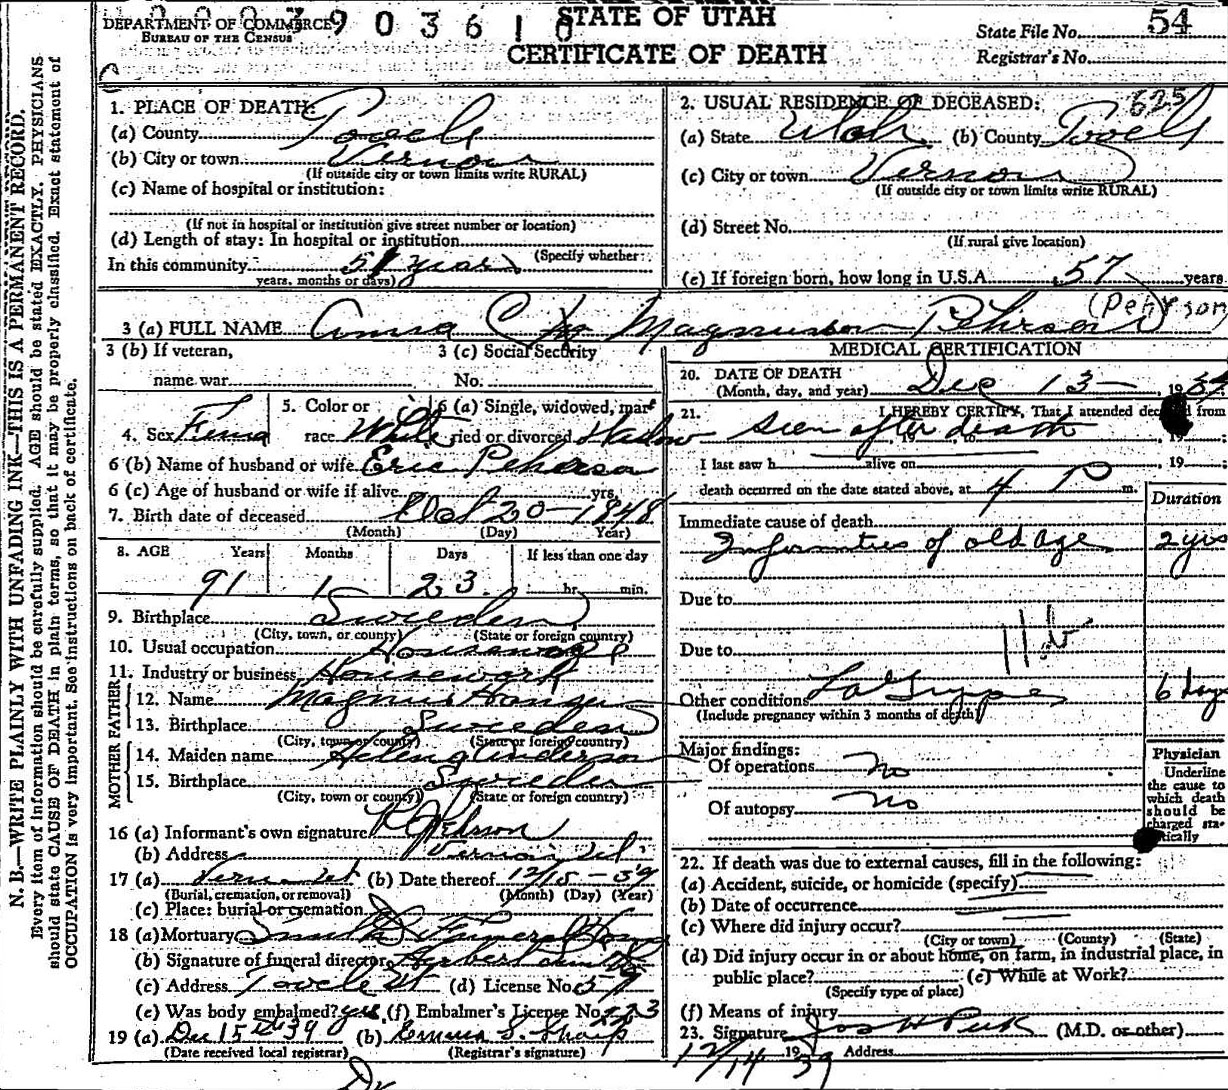 DEPARTMENT OF COMMERCE
BUREAU OF THE CENSUS
3 9 0 3 6 1 8
STATE OF UTAH
CERTIFICATE OF DEATH
State File No. 54
Registrar's No.
N. B.—WRITE PLAINLY WITH UNFADING INK—THIS IS A PERMANENT RECORD.
Every item of information should be carefully supplied. AGE should be stated EXACTLY. PHYSICIANS
should state CAUSE OF DEATH in plain terms, so that it may be properly classified. Exact statement of
OCCUPATION is very important. See instructions on back of certificate.
1. PLACE OF DEATH:
(a) County Tooele
(b) City or town Vernon
(If outside city or town limits write RURAL)
(c) Name of hospital or institution:
(If not in hospital or institution give street number or location)
(d) Length of stay: In hospital or institution
(Specify whether
In this community 51 years
years, months or days)
2. USUAL RESIDENCE OF DECEASED: 625
(a) State Utah (b) County Tooele
(c) City or town Vernon
(If outside city or town limits write RURAL)
(d) Street No.
(If rural give location)
(e) If foreign born, how long in U.S.A. 57 years
(Pehrson
3 (a) FULL NAME Anna C Magnuson Pehrson
3 (b) If veteran,
name war
3 (c) Social Security
No.
4. Sex Fema
5. Color or
race White
6 (a) Single, widowed, mar-
ried or divorced Widow
6 (b) Name of husband or wife Eric Pehrson
6 (c) Age of husband or wife if alive yrs.
7. Birth date of deceased Oct 20-1848
(Month) (Day) Year)
8. AGE Years Months Days If less than one day
91 1 23 hr. min.
9. Birthplace Sweden
(City, town, or county) (State or foreign country)
10. Usual occupation Housewife
11. Industry or business Housework
FATHER
12. Name Magnus Hansen
13. Birthplace Sweden
(City, town or county) (State or foreign country)
MOTHER
14. Maiden name Helena Anderson
15. Birthplace Sweden
(City, town or county) (State or foreign country)
16 (a) Informant's own signature Pehrson
(b) Address Vernon Ut
17 (a) Vernon Ut (b) Date thereof 12/15-39
(Burial, cremation, or removal) (Month) (Day) (Year)
(c) Place: burial or cremation
18 (a) Mortuary Smith Funeral Home
(b) Signature of funeral director Herbert Smith
(c) Address Tooele Ut (d) License No. 59
(e) Was body embalmed? yes (f) Embalmer's License No. 223
19 (a) Dec 15th 39 (b) Emma S. Sharp
(Date received local registrar) (Registrar's signature)
MEDICAL CERTIFICATION
20. DATE OF DEATH
(Month, day, and year) Dec 13— 1939
21. I HEREBY CERTIFY, That I attended deceased from
Seen after death
19 to 19
I last saw h alive on , 19
death occurred on the date stated above, at 4 P m.
Duration
Immediate cause of death
Infirmities of old age 2 yrs
Due to
Due to
Other conditions La Grippe 6 days
(Include pregnancy within 3 months of death)
Major findings:
Of operations no
Of autopsy no
Physician
Underline
the cause to
which death
should be
charged sta-
tistically
22. If death was due to external causes, fill in the following:
(a) Accident, suicide, or homicide (specify)
(b) Date of occurrence
(c) Where did injury occur?
(City or town) (County) (State)
(d) Did injury occur in or about home, on farm, in industrial place, in
public place? (e) While at Work?
(Specify type of place)
(f) Means of injury
23. Signature Jos H Peck (M.D. or other)
12/14 1939 Address
Dr